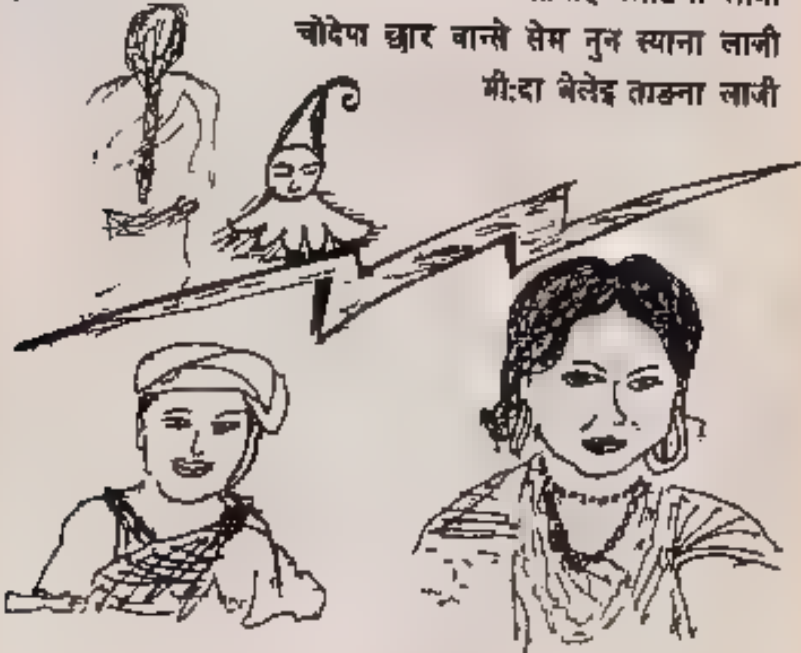 चोदेपा छार वान्से सेम नुन स्याना लाजी
मी:दा बेलेद्व ताङना लाजी